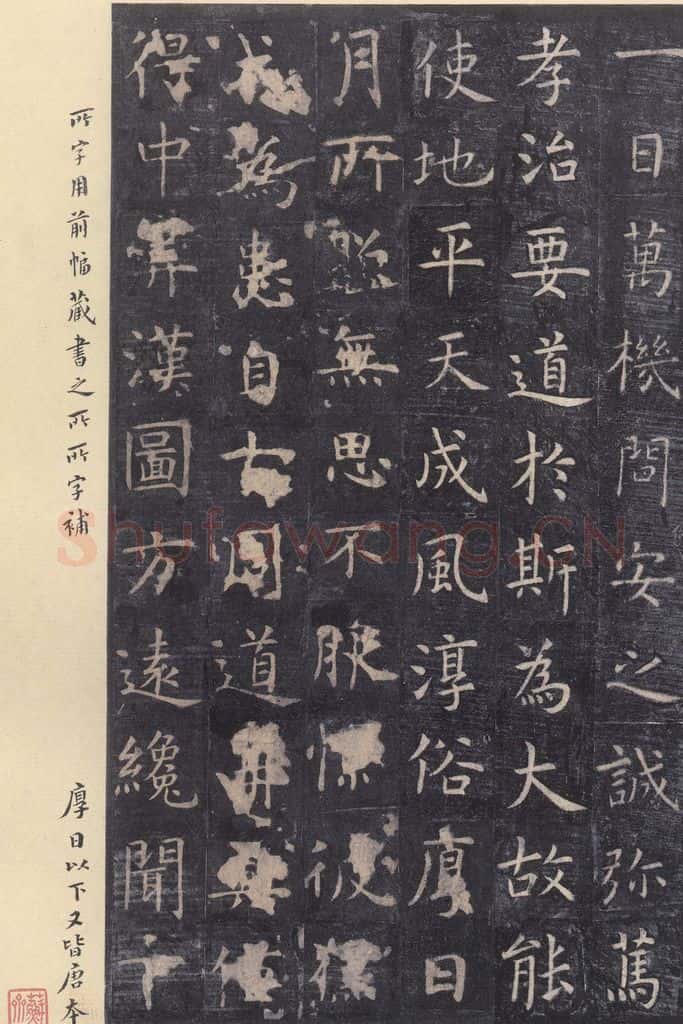 一日萬機問安之誠弥篤
孝治要道於斯為大故能
使地平天成風淳俗厚日
月所照無思不服憬彼獯
戎為患自古周道再興僅
得中筭漢圖方遠纔聞下
所字用前幅藏書之所所字補
厚日以下又皆唐本
Shufawang.CN